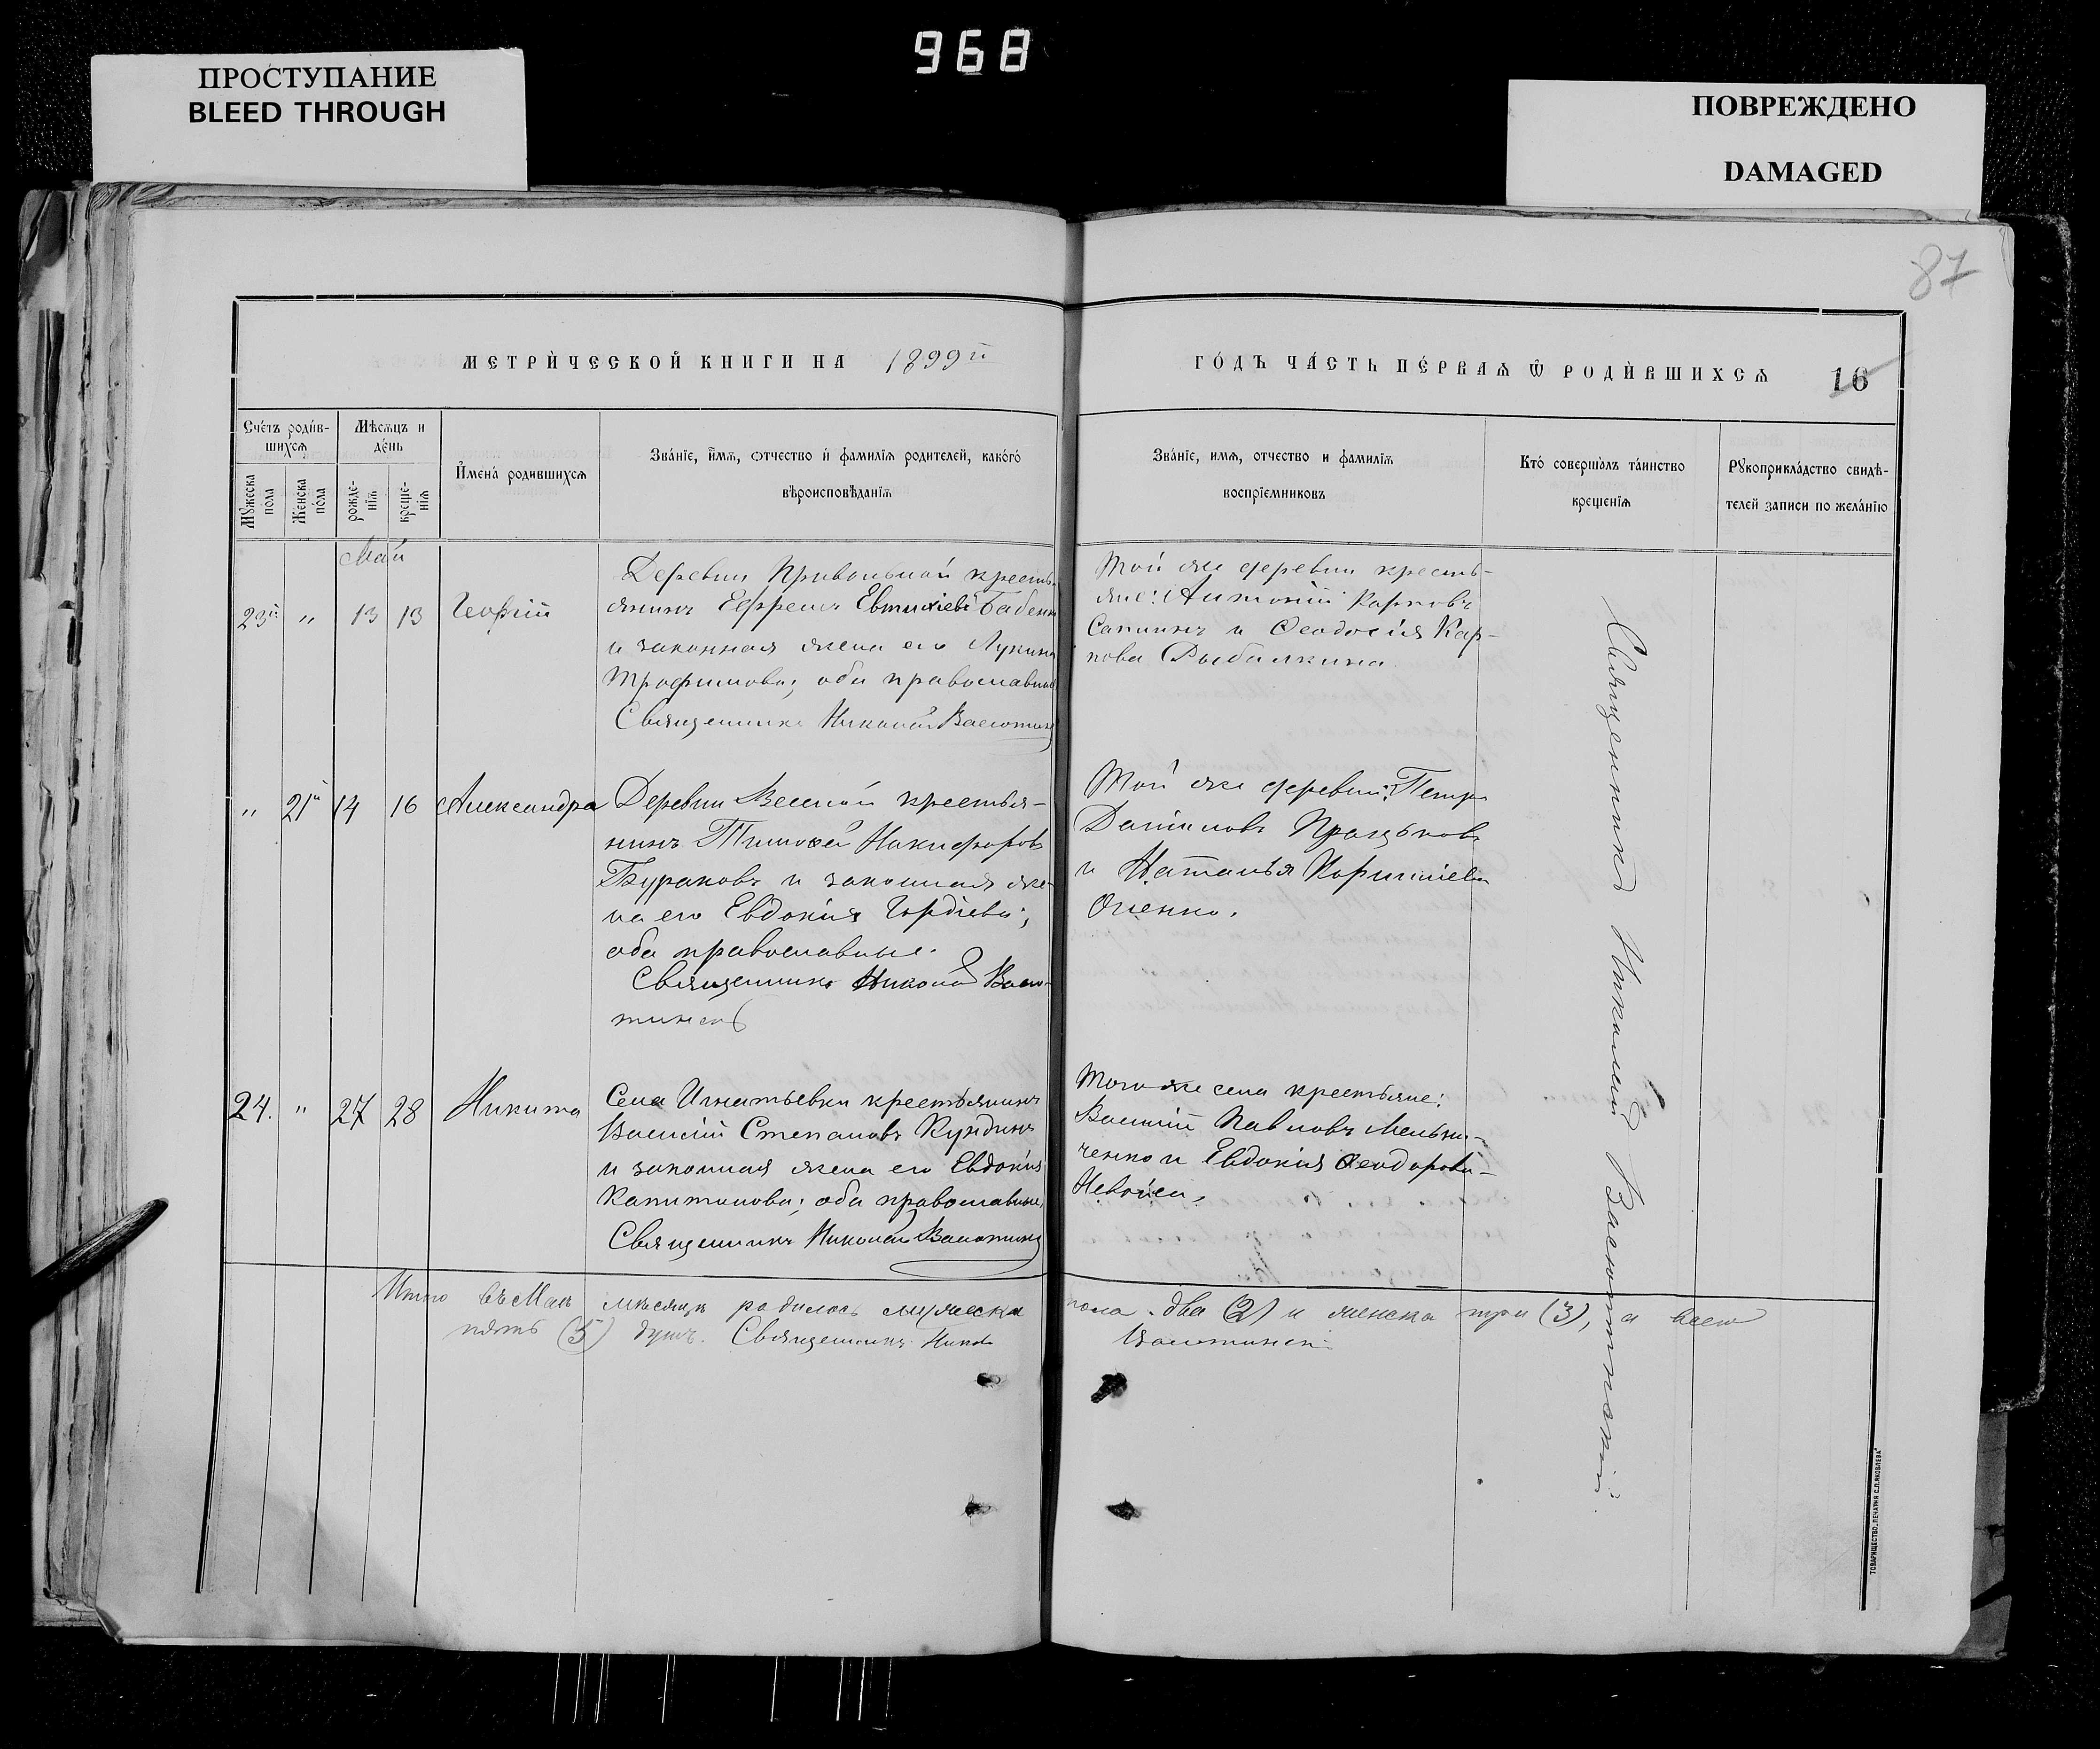 968
ПРОСТУПАНИЕ
BLEED THROUGH
ПОВРЕЖДЕНО
DAMAGED
87
МЕТРИЧЕСКОЙ КНИГИ НА 1899й
ГОДЪ ЧАСТЬ ПЕРВАЯ Ѿ РОДИВШИХСЯ 16
Счетъ родив-
шихся
Мѣсяцъ и
день
Мужеска
пола
Женска
пола
рожде-
нія
креще-
нія
Имена родившихся
Званіе, имя, отчество и фамилія родителей, какого
вѣроисповѣданія
Званіе, имя, отчество и фамилія
воспріемниковъ
Кто совершалъ таинство
крещенія
Рукоприкладство свидѣ-
телей записи по желанію
Май
23й " 13 13 Георгій
Деревни Привольной кресть-
янинъ Ефремъ Евтихіевъ Бабенко
и законная жена его Лукина
Трофимова; оба православные
Священникъ Николай
Той же деревни кресть-
яне: Антоній Карповъ
Сапинъ и Ѳеодосія Кар-
пова Рыбалкина.
" 21я 14 16 Александра
Деревни Веселой крестья-
нинъ Тимоѳей Никифоровъ
Бураковъ и законная же-
на его Евдокія Гордіева;
оба православные.
Священникъ Николай
Той же деревни: Петръ
Даниловъ
и Наталья
24. " 27 28 Никита
Села Игнатьевки крестьянинъ
Василій Степановъ
и законная жена его Евдокія
Капитонова; оба православные,
Священникъ Николай
Того же села крестьяне:
Василій Павловъ Мельни-
ченко и Евдокія Ѳеодорова
Священникъ Николай
Итого въ Маѣ мѣсяцѣ родилось мужеска пола два (2) и женска три (3), а всего
пять (5) душъ. Священникъ
ТОВАРИЩЕСТВО „ПЕЧАТНЯ С.П.ЯКОВЛЕВА"